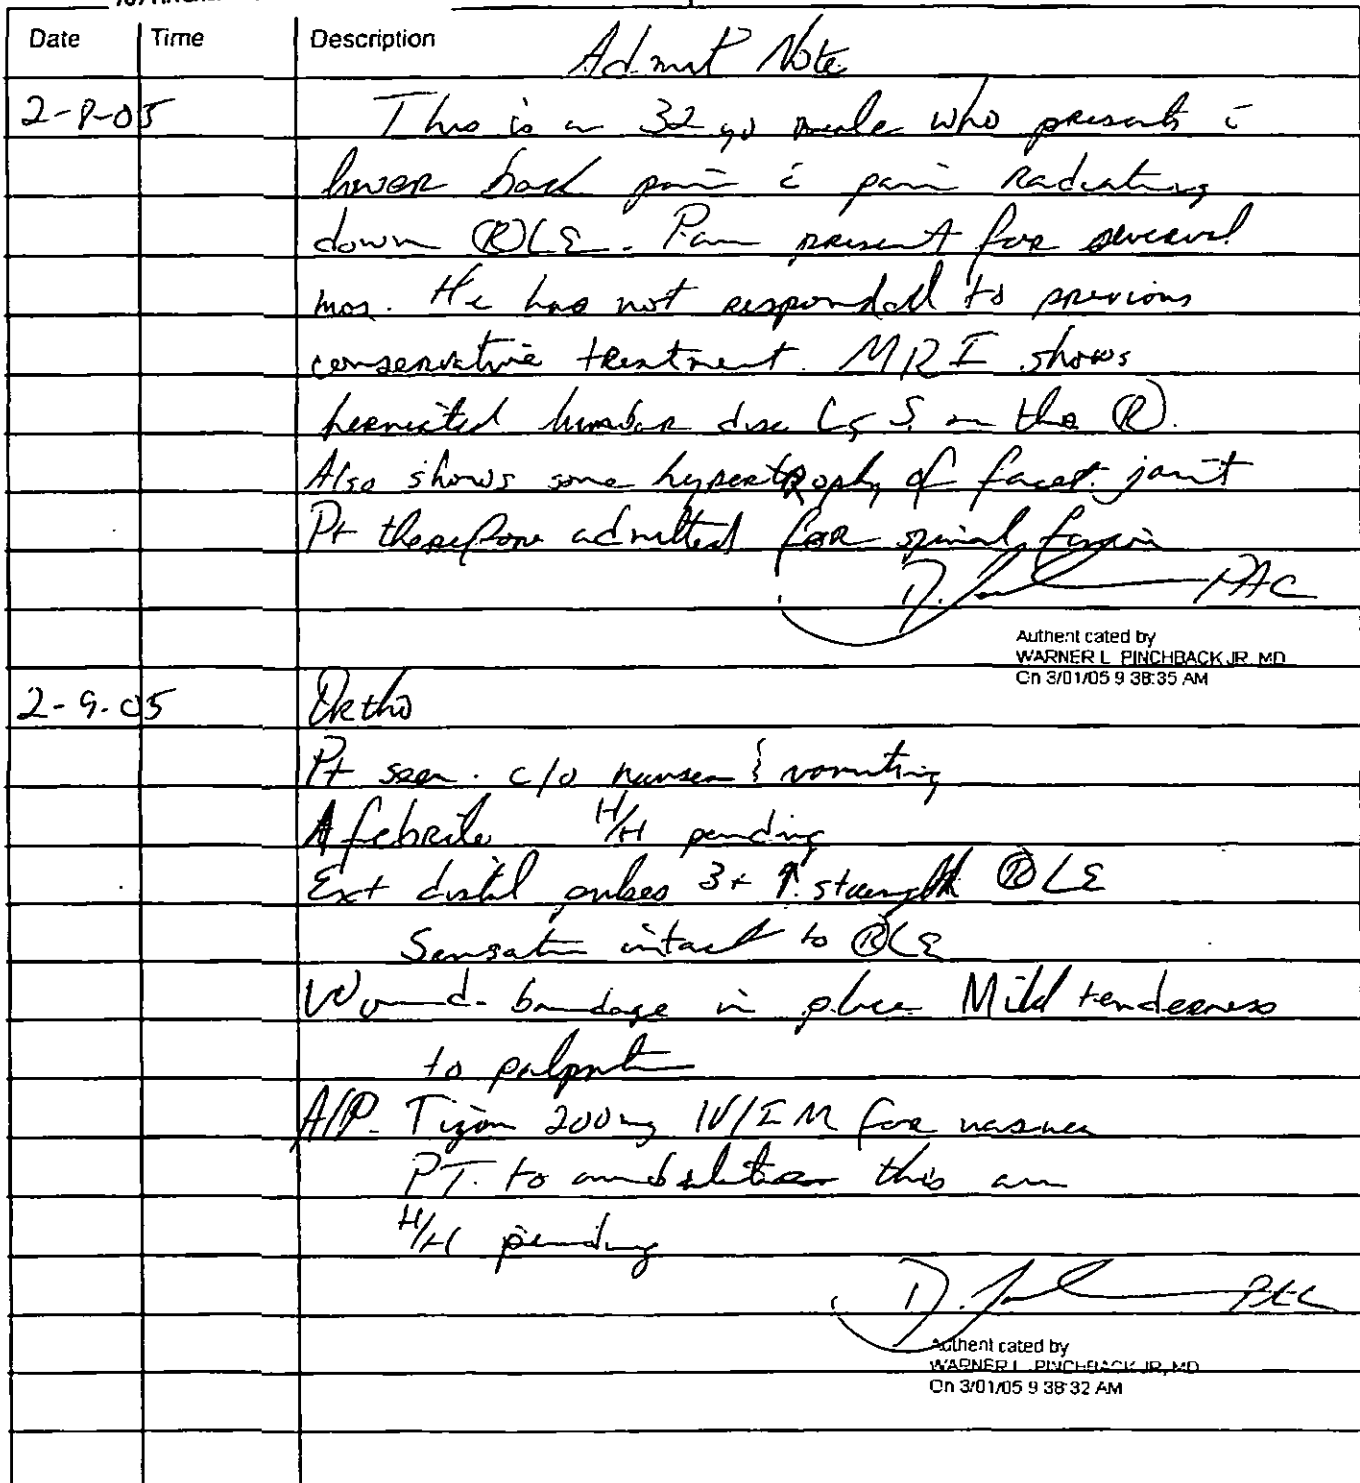 Date Time Description
Admit Note
2-8-05 This is a 32 yo male who presents c̄
lower back pain c̄ pain Radiating
down Ⓡ LE. Pain present for several
mos. He has not responded to previous
conservative treatment. MRI shows
herniated lumbar disc L5 S1 on the Ⓡ.
Also shows some hypertrophy of facet joint
Pt therefore admitted for spinal fusion
D. PAC
Authent cated by
WARNER L PINCHBACK JR, MD
On 3/01/05 9 38:35 AM
2-9-05 Ortho
Pt seen. c/o nausea & vomiting
Afebrile H/H pending
Ext distal pulses 3+ ↑ strength Ⓡ LE
Sensation intact to Ⓡ LE
Wound- bandage in place Mild tenderness
to palpation
A/P- Tigan 200mg IV/IM for nausea
PT. to ambulate this am
H/H pending
D. PAC
Authent cated by
WARNER L PINCHBACK JR, MD
On 3/01/05 9 38 32 AM